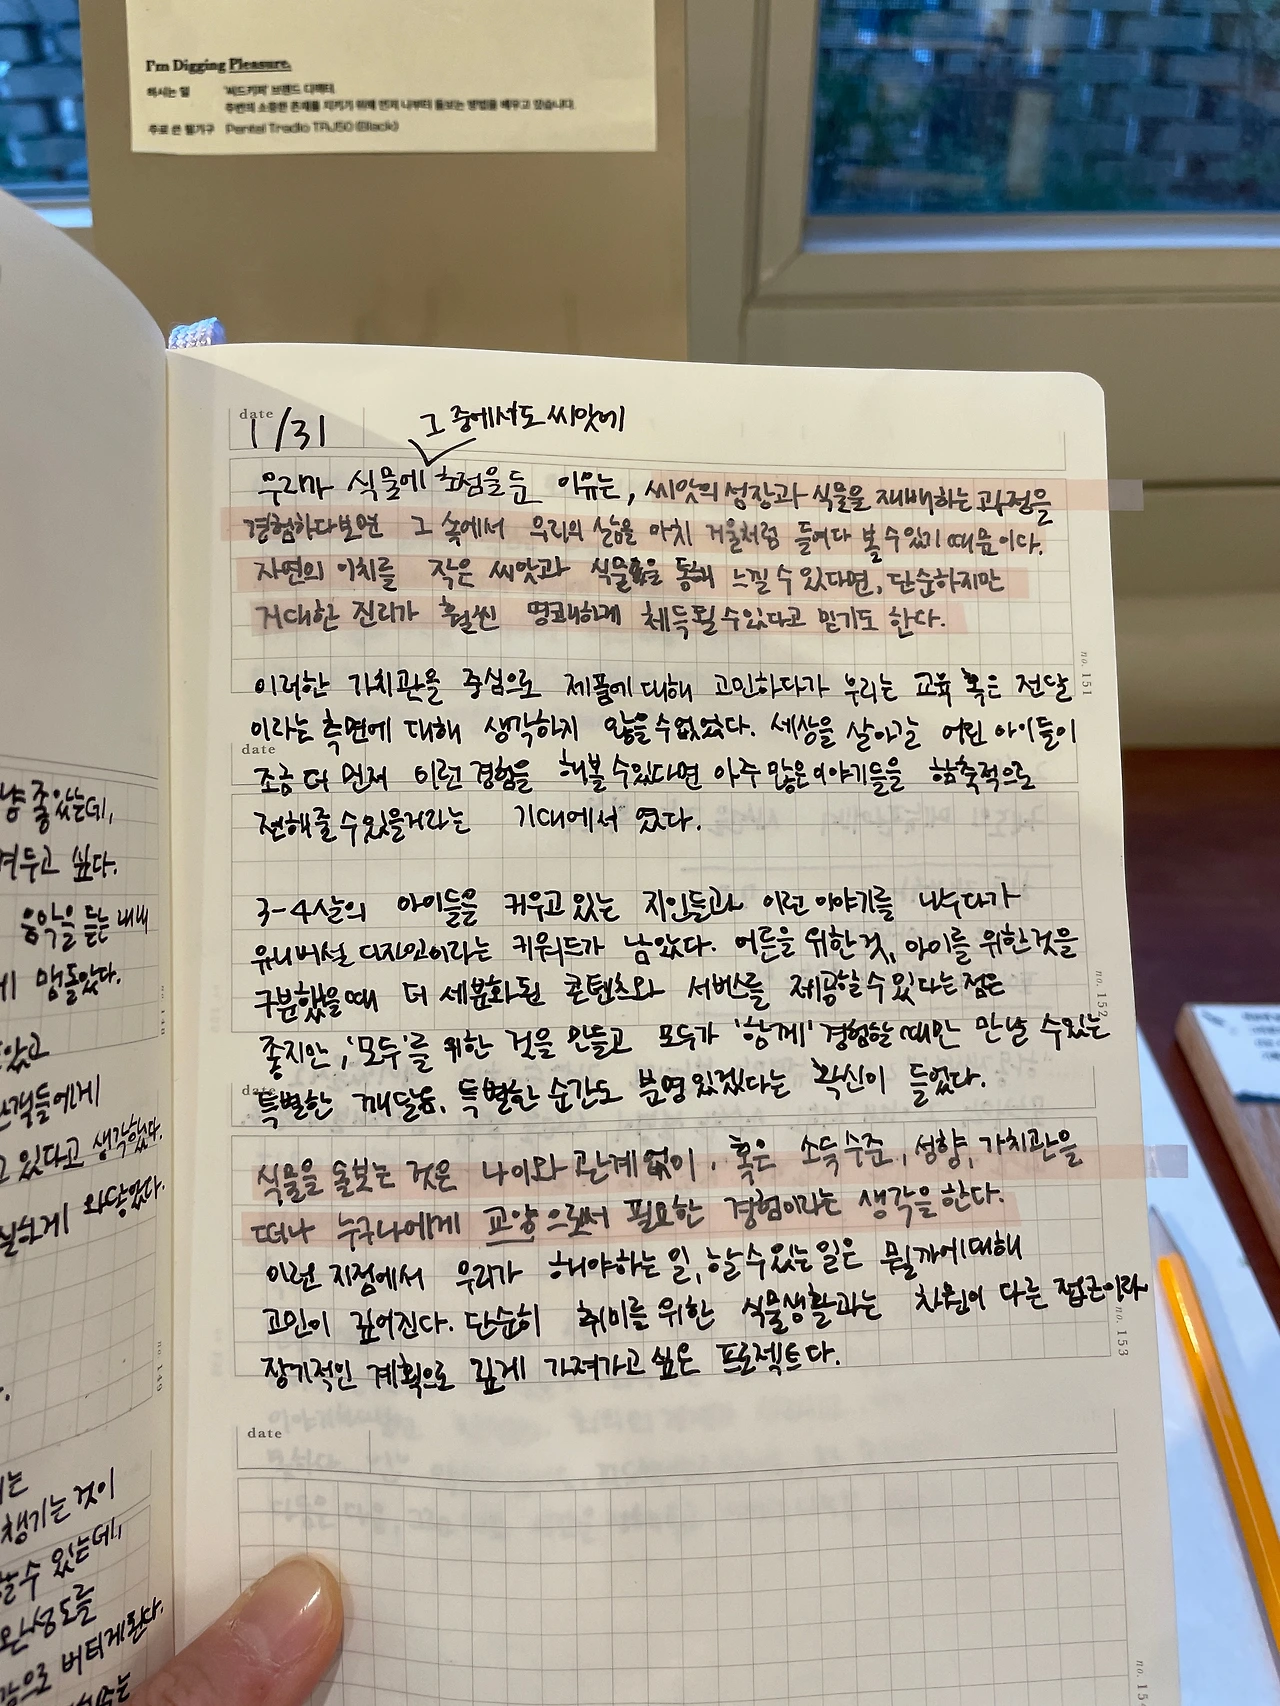 I'm Digging Pleasure.
하시는 일 '씨드키퍼' 브랜드 디렉터.
주변의 소중한 존재를 지키기 위해 먼저 나부터 돌보는 방법을 배우고 있습니다.
주로 쓴 필기구 Pentel Tradio TRJ50 (Black)
date
1/31
그 중에서도 씨앗에
우리가 식물에 초점을 둔 이유는, 씨앗의 성장과 식물을 재배하는 과정을
경험하다보면 그 속에서 우리의 삶을 마치 거울처럼 들여다 볼 수 있기 때문이다.
자연의 이치를 작은 씨앗과 식물을 통해 느낄 수 있다면, 단순하지만
거대한 진리가 훨씬 명쾌하게 체득될 수 있다고 믿기도 한다.
no. 151
이러한 가치관을 중심으로 제품에 대해 고민하다가 우리는 교육 혹은 전달
이라는 측면에 대해 생각하지 않을 수 없었다. 세상을 살아갈 어린 아이들이
date
조금 더 먼저 이런 경험을 해볼 수 있다면 아주 많은 이야기들을 함축적으로
전해줄 수 있을거라는 기대에서 였다.
3-4살의 아이들을 키우고 있는 지인들과 이런 이야기를 나누다가
유니버설 디자인이라는 키워드가 남았다. 어른을 위한 것, 아이를 위한 것을
구분했을 때 더 세분화된 콘텐츠와 서비스를 제공할 수 있다는 점은
no. 152
좋지만, '모두'를 위한 것을 만들고 모두가 '함께' 경험할 때만 만날 수 있는
date
특별한 깨달음, 특별한 순간도 분명 있겠다는 확신이 들었다.
식물을 돌보는 것은 나이와 관계없이, 혹은 소득수준, 성향, 가치관을
떠나 누구나에게 교양으로써 필요한 경험이라는 생각을 한다.
이런 지점에서 우리가 해야하는 일, 할 수 있는 일은 뭘까에 대해
고민이 깊어진다. 단순히 취미를 위한 식물생활과는 차원이 다른 접근이라
no. 153
장기적인 계획으로 깊게 가져가고 싶은 프로젝트다.
date
좋았는데,
싶다.
음악을 듣는 내내
맴돌았다.
있다고 생각했다.
와닿았다.
no. 149
챙기는 것이
할 수 있는데,
완성도를
버티게 된다.